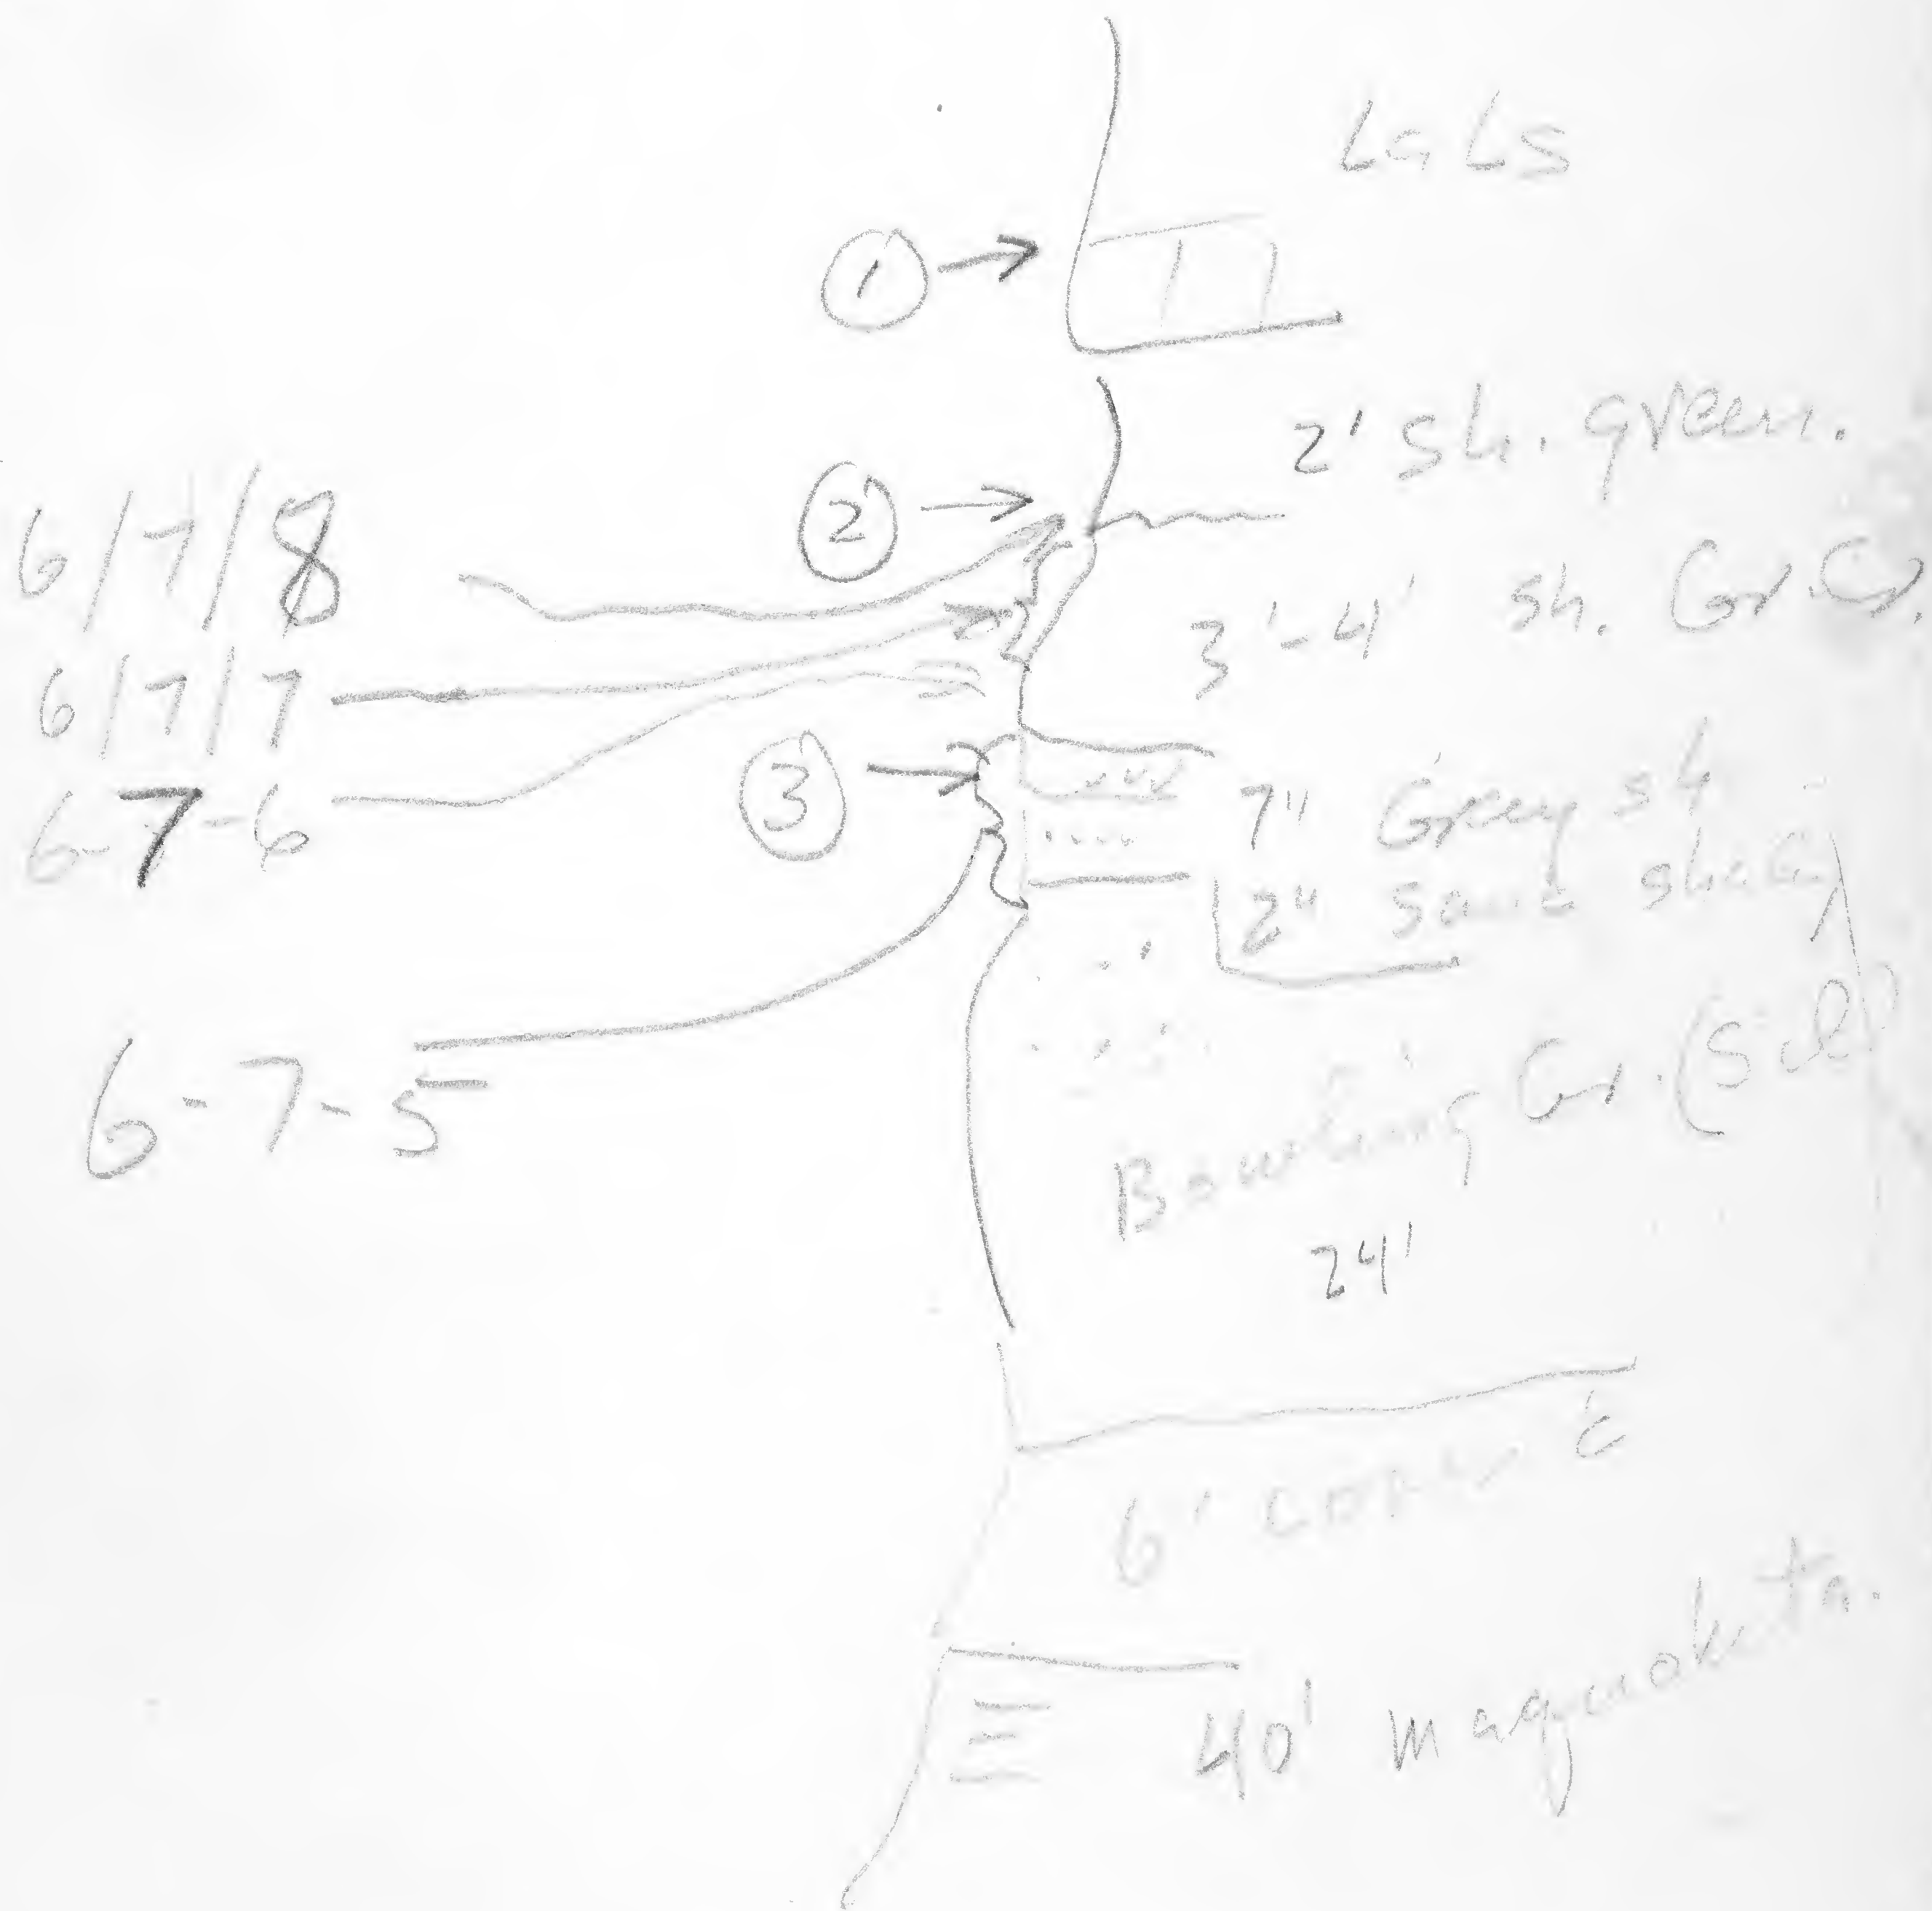 La Ls
①
2' sh. green.
②
6/7/8
3'-4' sh. Gr.
6/7/7
③
6-7-6
7" Grey sh
2" Sand
6-7-5
Bowling Gr. (Sil)
24'
6'
40' maquoketa.